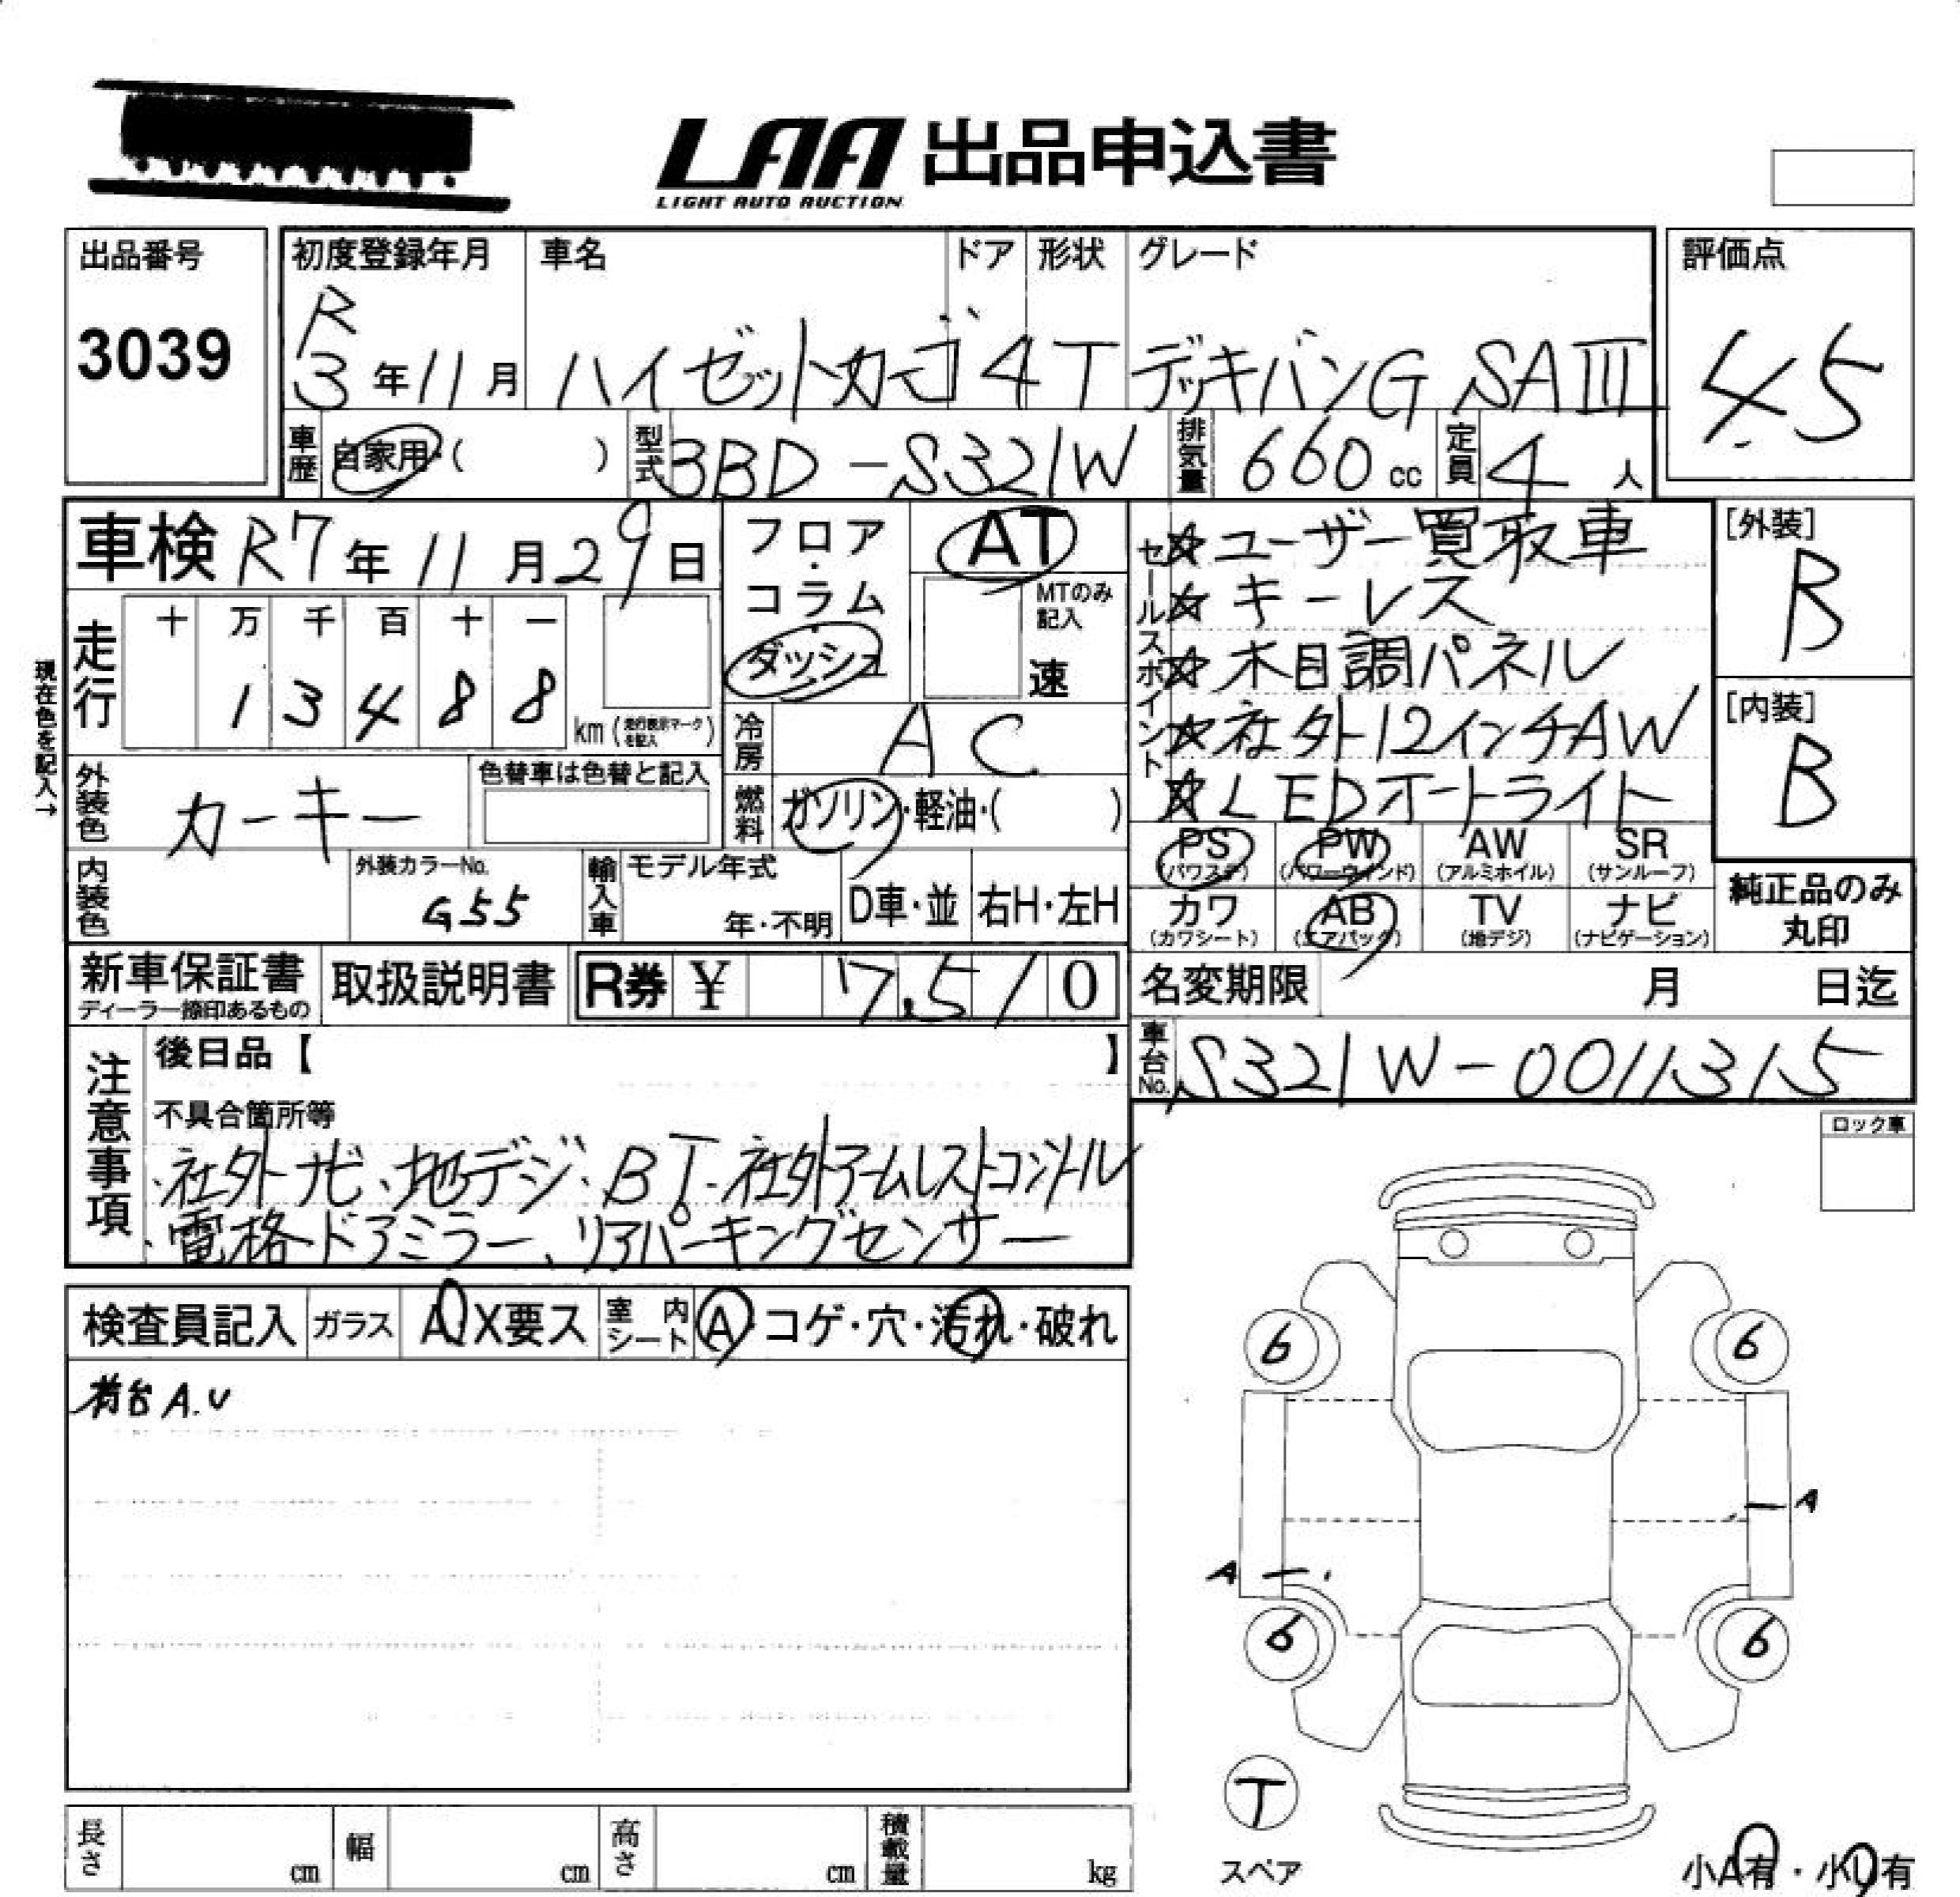 LAA 出品申込書
LIGHT AUTO AUCTION
出品番号
3039
初度登録年月 車名 ドア 形状 グレード
R
3年11月 ハイゼットカーゴ 4 T デッキバンG SAIII
評価点
4.5
車歴 自家用・( ) 型式 3BD-S321W 排気量 660cc 定員 4人
車検 R7年11月29日
フロア・コラム・ダッシュ
AT
MTのみ記入
速
セールスポイント
☆ユーザー買取車
☆キーレス
☆木目調パネル
☆社外12インチAW
☆LEDオートライト
[外装]
B
[内装]
B
現在色を記入→
走行 十 万 千 百 十 一
1 3 4 8 8
km(走行表示マークを記入)
冷房 AC
外装色 カーキー
色替車は色替と記入
燃料 ガソリン・軽油・( )
内装色
外装カラーNo.
G55
輸入車 モデル年式
年・不明
D車・並 右H・左H
PS (パワステ) PW (パワーウインド) AW (アルミホイル) SR (サンルーフ)
カワ (カワシート) AB (エアバック) TV (地デジ) ナビ (ナビゲーション)
純正品のみ
丸印
新車保証書
ディーラー捺印あるもの
取扱説明書
R券 ¥ 7,510
名変期限 月 日迄
車台No. S321W-0011315
注意事項
後日品【 】
不具合箇所等
・社外ナビ、地デジ、BT、社外アームレストコンソール
・電格ドアミラー、リアパーキングセンサー
ロック車
検査員記入 ガラス A X要ス 室内シート A・コゲ・穴・汚れ・破れ
荷台A.U
6 6
A
A
6 6
T
スペア
小A有・小U有
長さ cm 幅 cm 高さ cm 積載量 kg